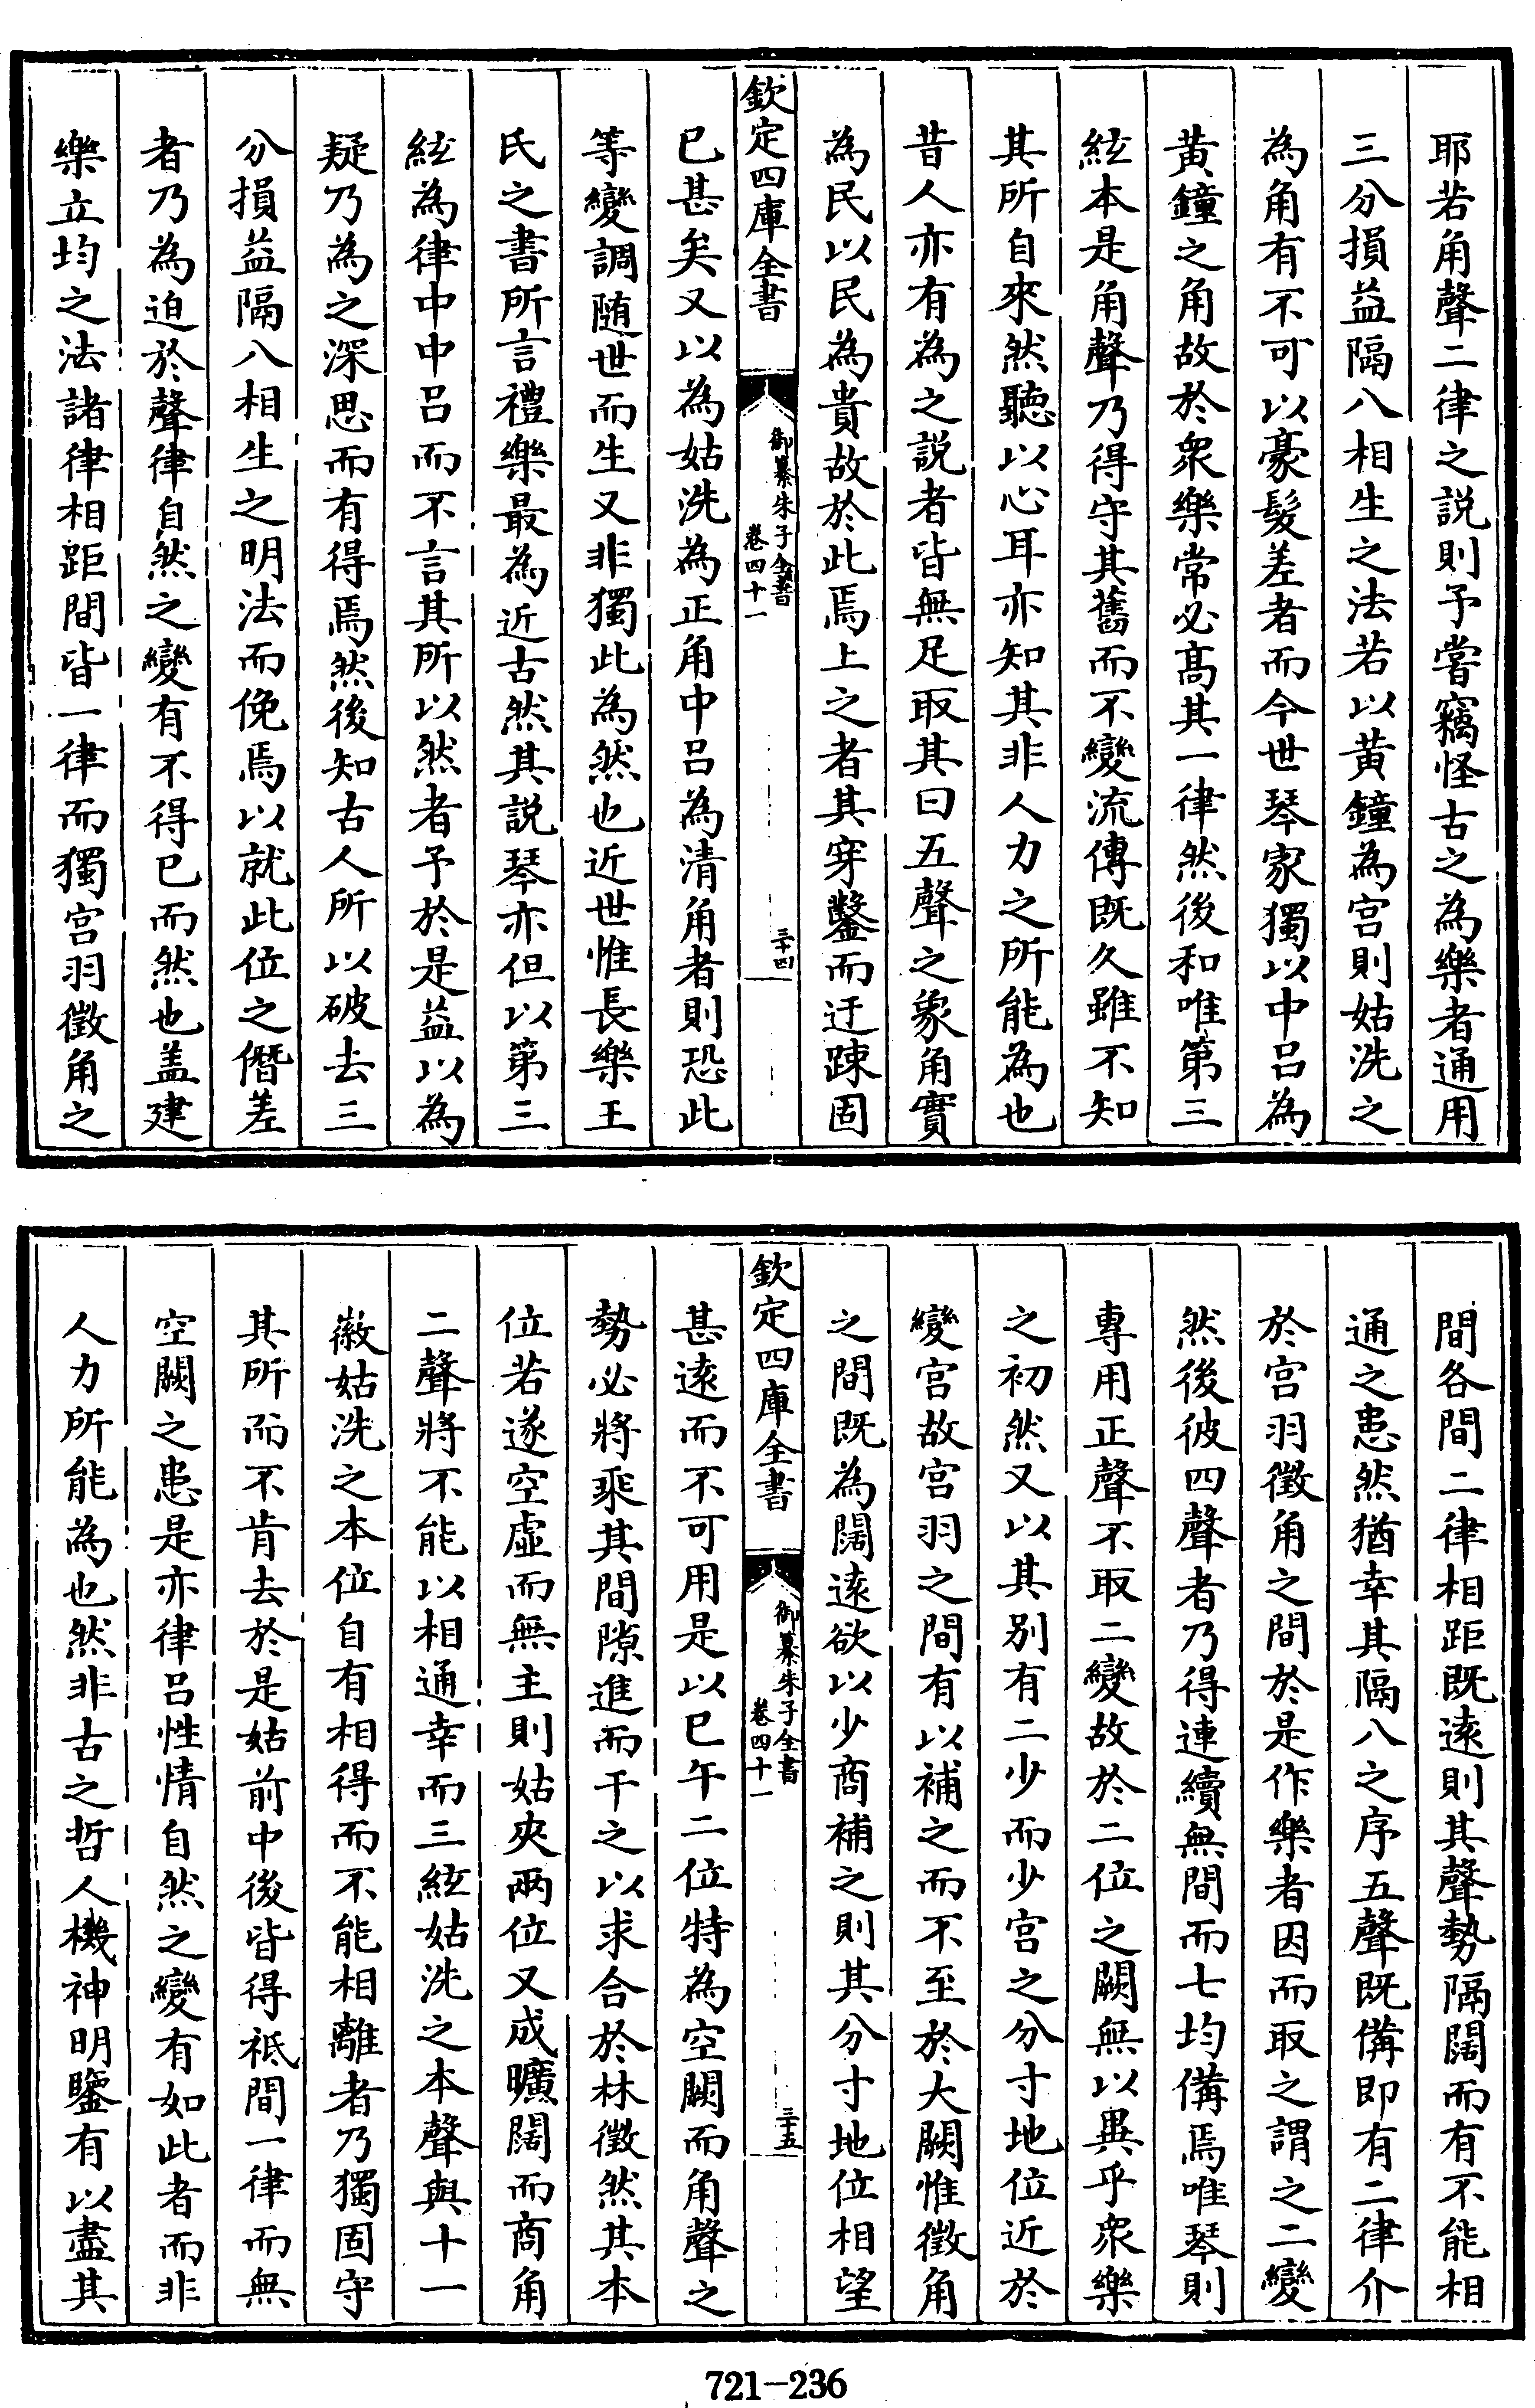 耶若角聲二律之説則予嘗竊怪古之為樂者通用
三分損益隔八相生之法若以黄鐘為宫則姑洗之
為角有不可以豪髮差者而今世琴家獨以中吕為
黄鐘之角故於衆樂常必髙其一律然後和唯第三
絃本是角聲乃得守其舊而不變流傳既久雖不知
其所自來然聽以心耳亦知其非人力之所能為也
昔人亦有為之説者皆無足取其曰五聲之象角實
為民以民為貴故於此焉上之者其穿鑿而迂踈固
欽定四庫全書
御纂朱子全書
卷四十一
三十四
已甚矣又以為姑洗為正角中吕為清角者則恐此
等變調随世而生又非獨此為然也近世惟長樂王
氏之書所言禮樂最為近古然其説琴亦但以第三
絃為律中中吕而不言其所以然者予於是益以為
疑乃為之深思而有得焉然後知古人所以破去三
分損益隔八相生之明法而俛焉以就此位之僭差
者乃為迫於聲律自然之變有不得已而然也盖建
樂立均之法諸律相距間皆一律而獨宫羽徵角之
間各間二律相距既逺則其聲勢隔闊而有不能相
通之患然猶幸其隔八之序五聲既備即有二律介
於宫羽徵角之間於是作樂者因而取之謂之二變
然後彼四聲者乃得連續無間而七均備焉唯琴則
專用正聲不取二變故於二位之闕無以異乎衆樂
之初然又以其别有二少而少宫之分寸地位近於
變宫故宫羽之間有以補之而不至於大闕惟徵角
之間既為闊逺欲以少商補之則其分寸地位相望
欽定四庫全書
御纂朱子全書
卷四十一
三十五
甚逺而不可用是以巳午二位特為空闕而角聲之
勢必將乘其間隙進而干之以求合於林徵然其本
位若遂空虚而無主則姑夾兩位又成曠闊而商角
二聲將不能以相通幸而三絃姑洗之本聲與十一
徽姑洗之本位自有相得而不能相離者乃獨固守
其所而不肯去於是姑前中後皆得祗間一律而無
空闕之患是亦律吕性情自然之變有如此者而非
人力所能為也然非古之哲人機神明鑒有以盡其
721-236